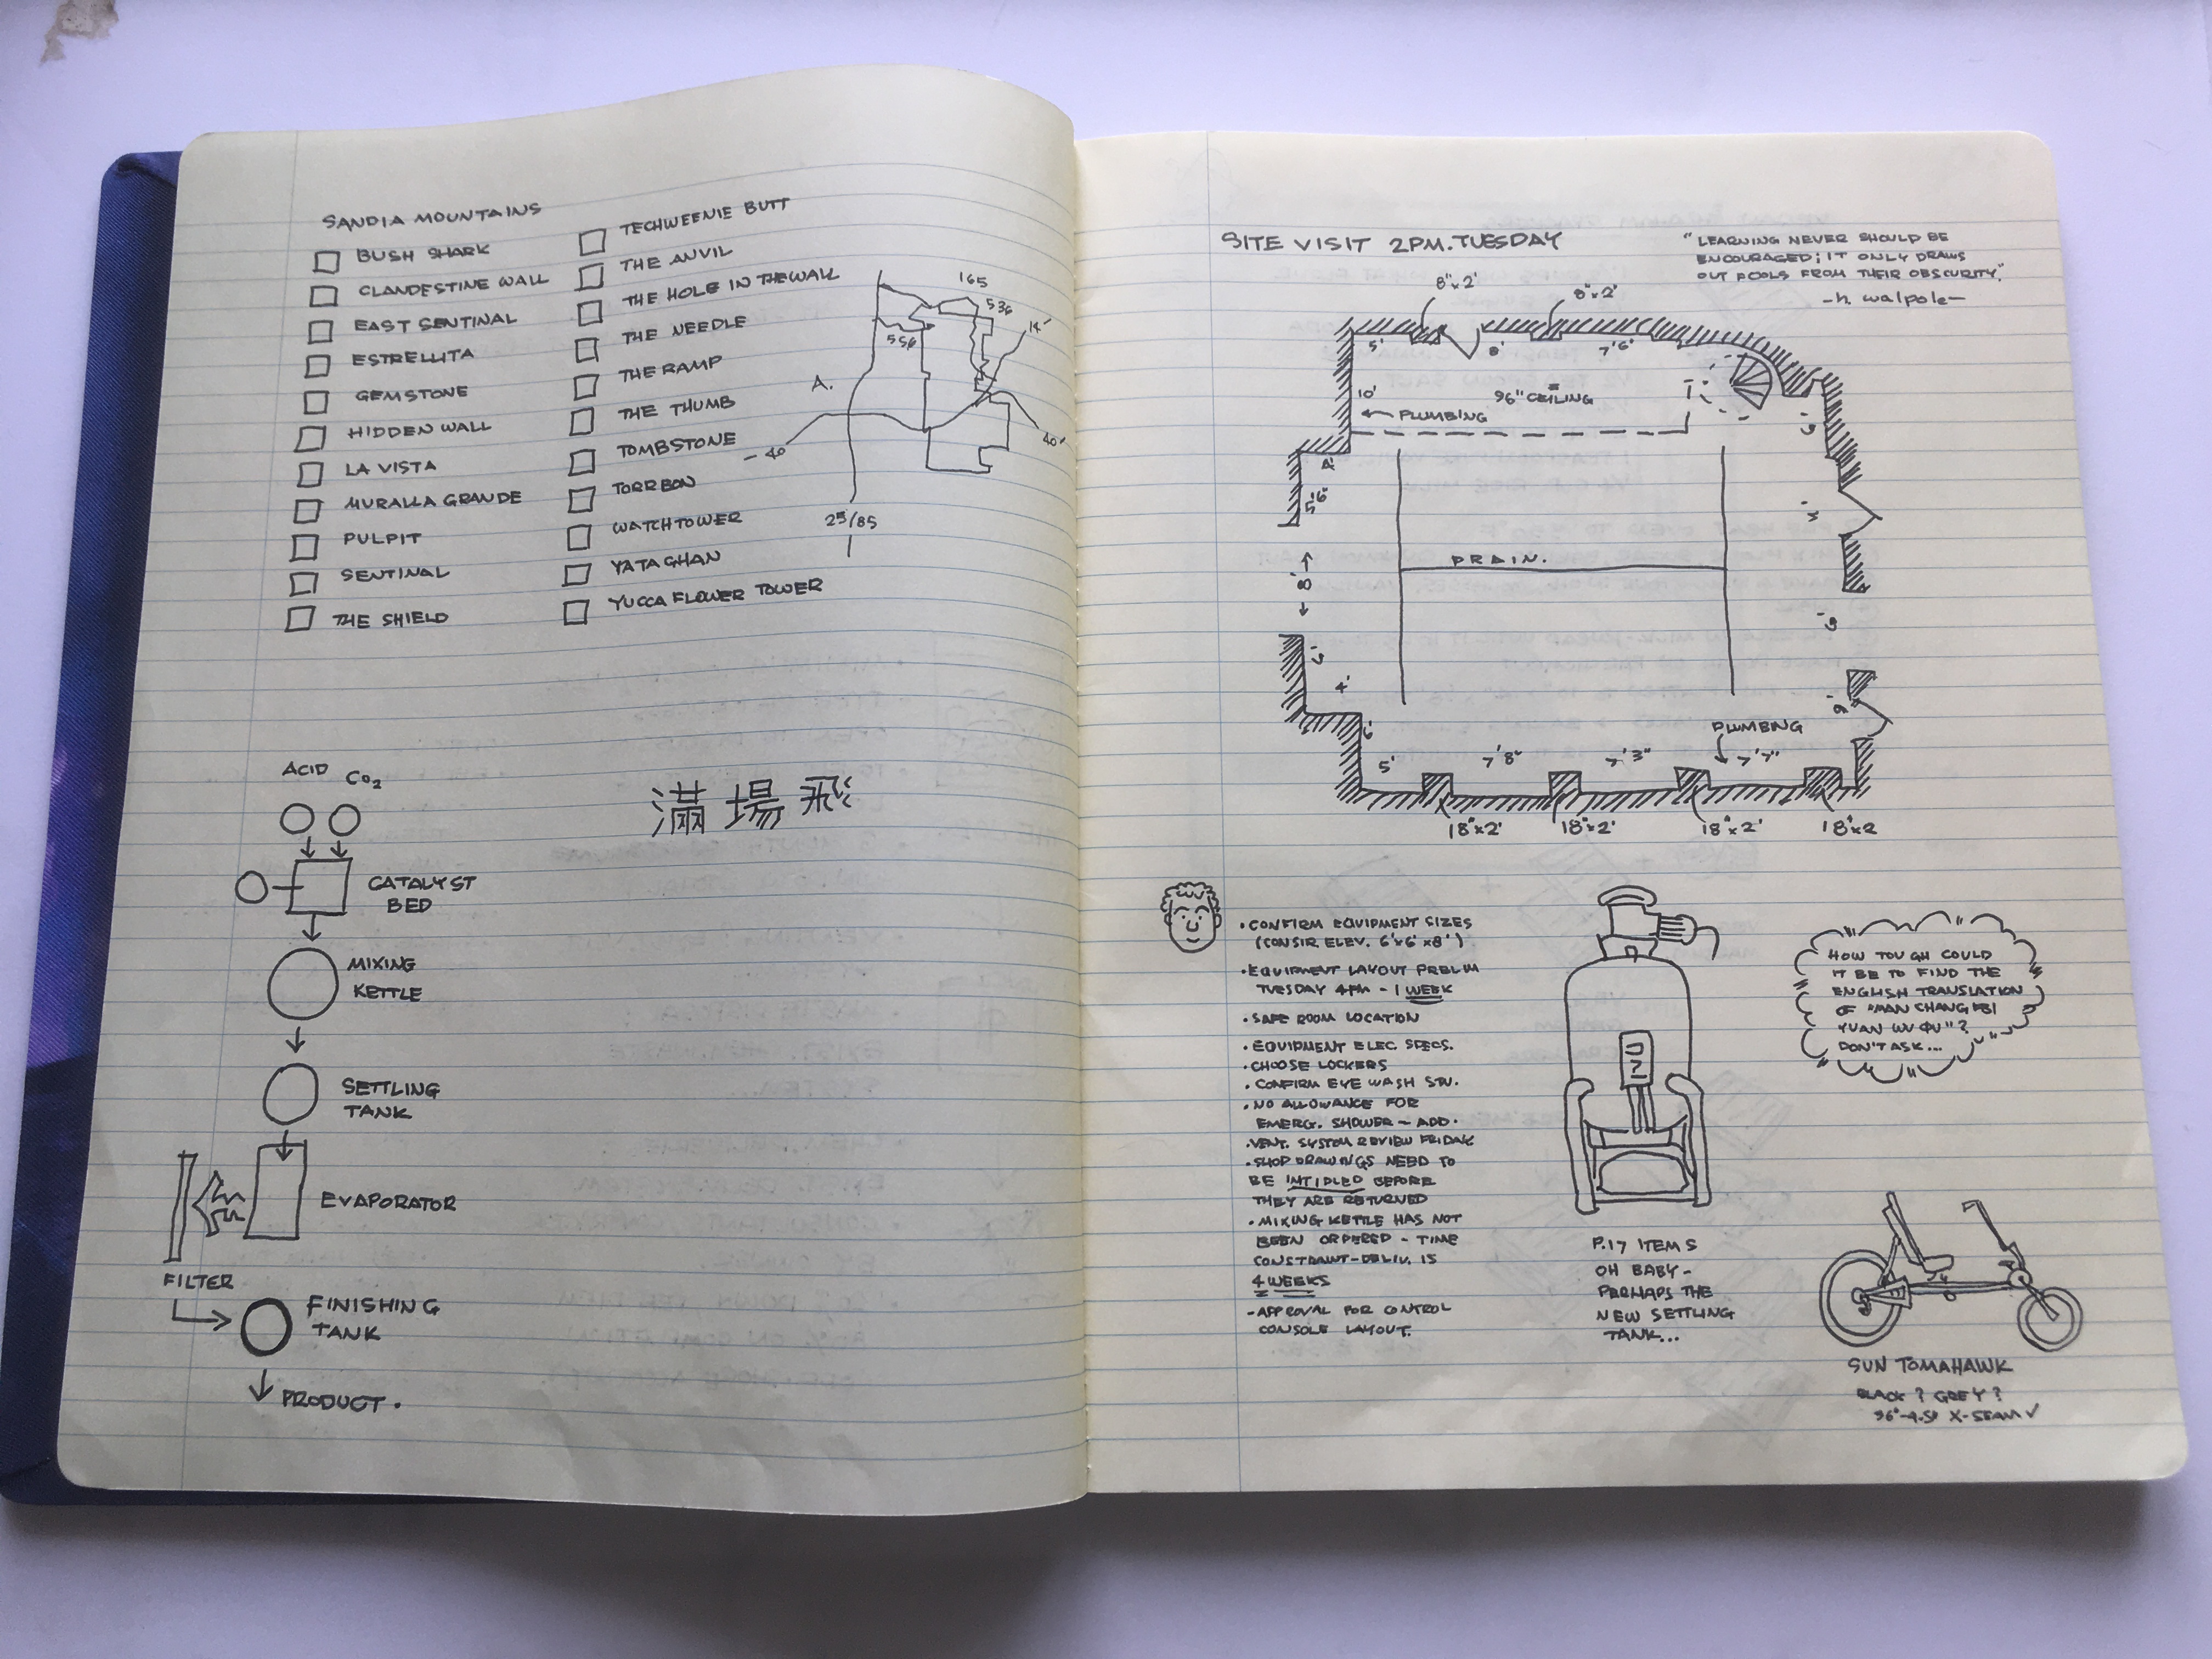 SANDIA MOUNTAINS
BUSH SHARK
CLANDESTINE WALL
EAST SENTINAL
ESTRELLITA
GEMSTONE
HIDDEN WALL
LA VISTA
MURALLA GRANDE
PULPIT
SENTINAL
THE SHIELD
TECHWEENIE BUTT
THE ANVIL
THE HOLE IN THE WALL
THE NEEDLE
THE RAMP
THE THUMB
TOMBSTONE
TORREON
WATCHTOWER
YATAGHAN
YUCCA FLOWER TOWER
165
536
14
556
A.
40
40
25/85
ACID CO2
CATALYST
BED
MIXING
KETTLE
SETTLING
TANK
EVAPORATOR
FILTER
FINISHING
TANK
PRODUCT.
滿場飛
SITE VISIT 2PM. TUESDAY
"LEARNING NEVER SHOULD BE
ENCOURAGED; IT ONLY DRAWS
OUT FOOLS FROM THEIR OBSCURITY."
-h. walpole-
8"x2'
8"x2'
5'
8'
7'6"
10'
96" CEILING
PLUMBING
4'
5'6"
8'
DRAIN.
4'
6'
PLUMBING
5'
7'8"
7'3"
7'7"
18"x2'
18"x2'
18"x2'
18"x2
•CONFIRM EQUIPMENT SIZES
(CONSIR. ELEV. 6'x6'x8')
•EQUIPMENT LAYOUT PRELIM
TUESDAY 4PM - 1 WEEK
•SAFE ROOM LOCATION
•EQUIPMENT ELEC SPECS.
•CHOOSE LOCKERS
•CONFIRM EYE WASH STN.
•NO ALLOWANCE FOR
EMERG. SHOWER - ADD.
•VENT. SYSTEM REVIEW FRIDAY
•SHOP DRAWINGS NEED TO
BE INTIDLED BEFORE
THEY ARE RETURNED
•MIXING KETTLE HAS NOT
BEEN ORDERED - TIME
CONSTRAINT-DELIV. IS
4 WEEKS
-APPROVAL FOR CONTROL
CONSOLE LAYOUT.
P.17 ITEMS
OH BABY -
PERHAPS THE
NEW SETTLING
TANK...
HOW TOUGH COULD
IT BE TO FIND THE
ENGLISH TRANSLATION
OF "MAN CHANG FEI
YUAN WU QU"?
DON'T ASK...
SUN TOMAHAWK
BLACK? GREY?
X-SEAM ✓